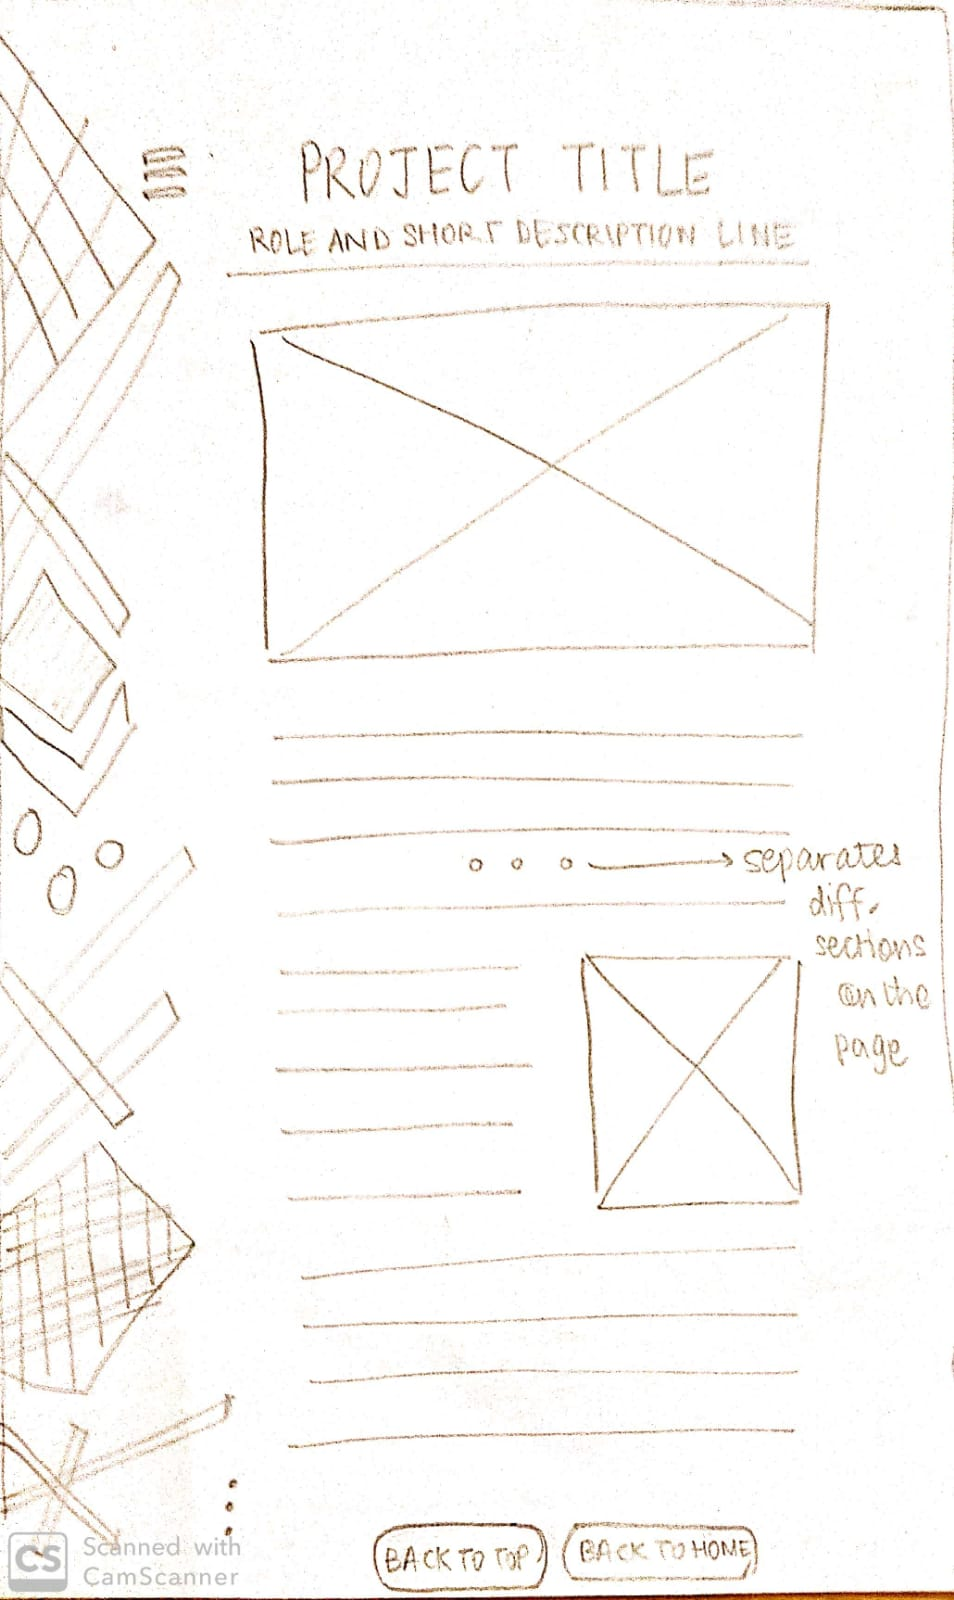 PROJECT TITLE
ROLE AND SHORT DESCRIPTION LINE
separates
diff.
sections
on the
page
BACK TO TOP
BACK TO HOME
CS Scanned with
CamScanner